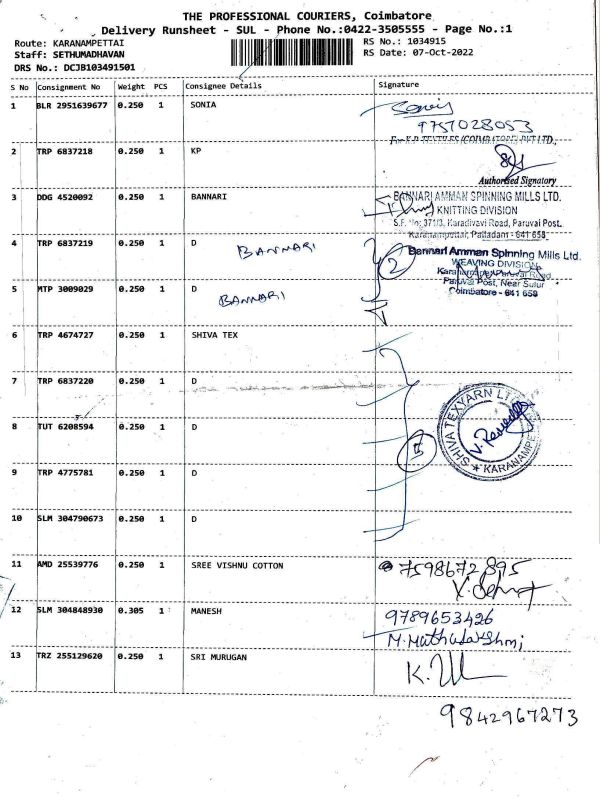 THE PROFESSIONAL COURIERS, Coimbatore
Delivery Runsheet - SUL - Phone No.:0422-3505555 - Page No.:1
Route: KARANAMPETTAI RS No.: 1034915
Staff: SETHUMADHAVAN RS Date: 07-Oct-2022
DRS No.: DCJB103491501
S No Consignment No Weight PCS Consignee Details Signature
1 BLR 2951639677 0.250 1 SONIA
9757028053
2 TRP 6837218 0.250 1 KP
Authorised Signatory
3 DDG 4520092 0.250 1 BANNARI BANNARI AMMAN SPINNING MILLS LTD.
KNITTING DIVISION
S.F. No: 371/3, Karadivavi Road, Paruvai Post,
Karanampettai, Palladam - 641 658
4 TRP 6837219 0.250 1 D BANNARI 2 Bannari Amman Spinning Mills Ltd.
WEAVING DIVISION
5 MTP 3009029 0.250 1 D BANNARI
Paruvai Post, Near Sulur
Coimbatore - 641 658
6 TRP 4674727 0.250 1 SHIVA TEX
7 TRP 6837220 0.250 1 D
8 TUT 6208594 0.250 1 D
SHIVA TEXYARN LTD
9 TRP 4775781 0.250 1 D
10 SLM 304790673 0.250 1 D
11 AMD 25539776 0.250 1 SREE VISHNU COTTON 7598672895
12 SLM 304848930 0.305 1 MANESH 9789653426
13 TRZ 255129620 0.250 1 SRI MURUGAN
9842967273